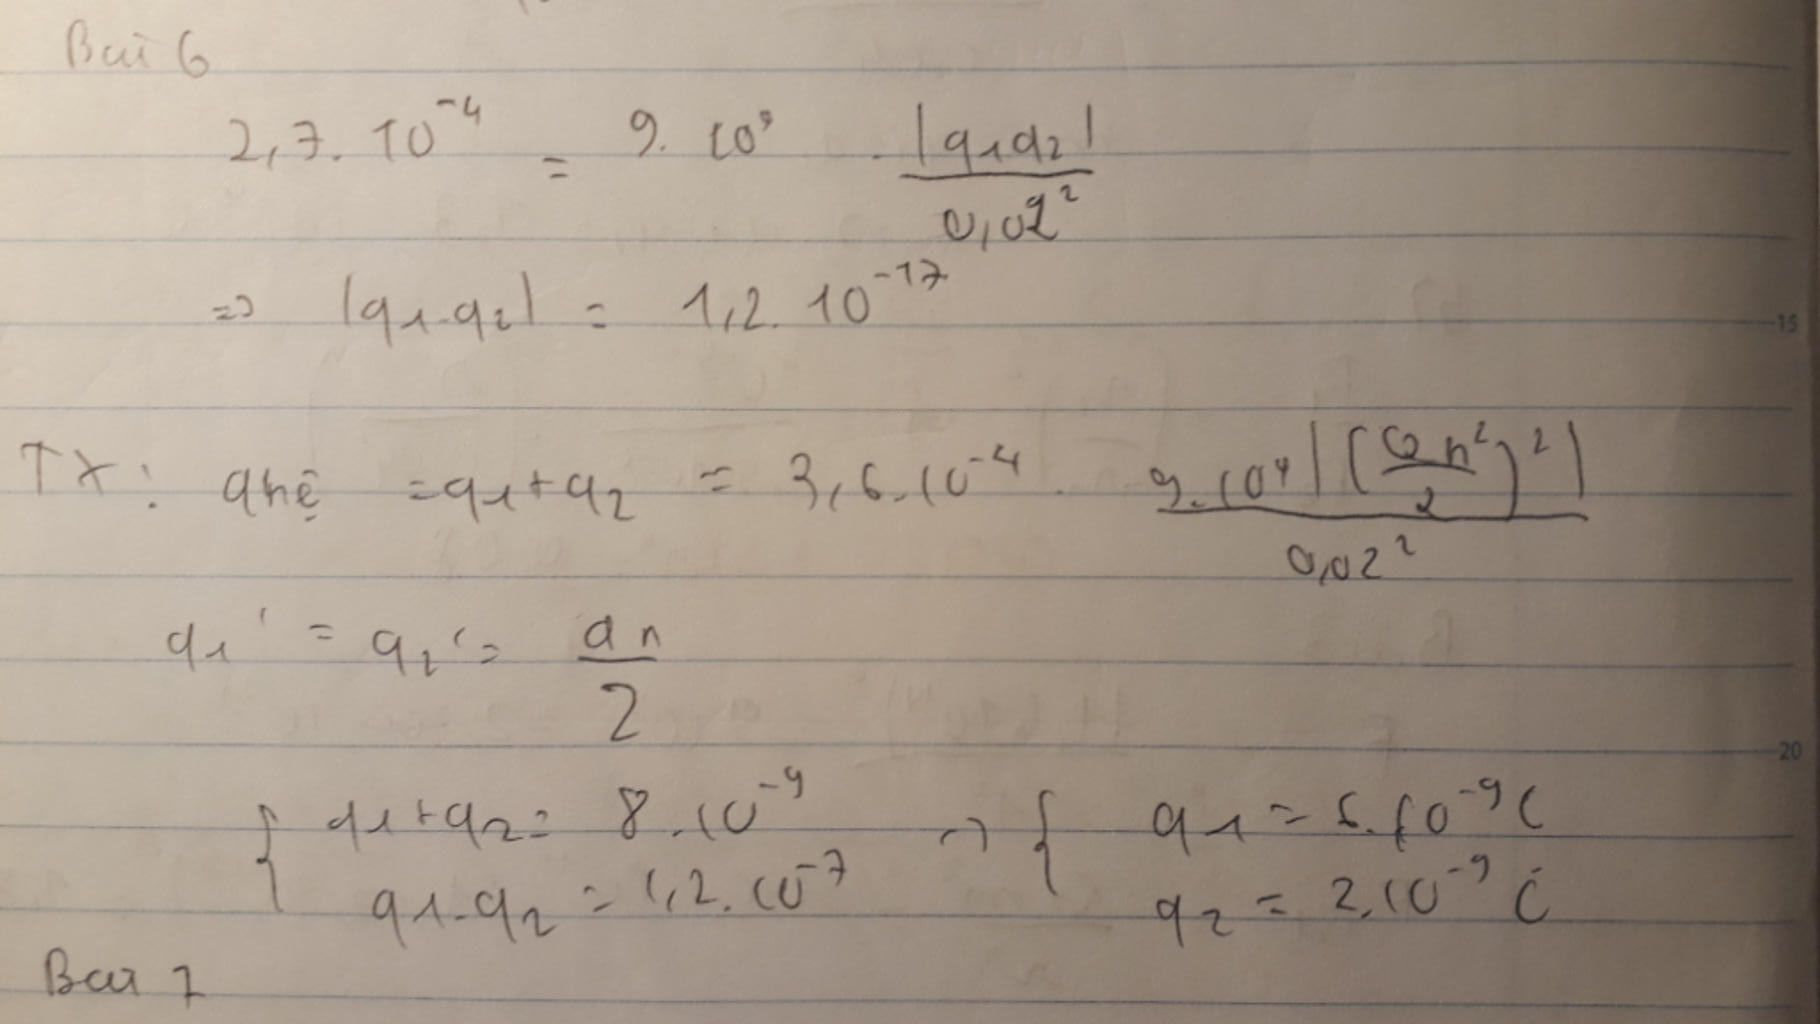 Bài 6
2,7. 10^-4 = 9. 10^9 . |q1q2| / 0,02^2
=> |q1.q2| = 1,2. 10^-17
TX: qhệ = q1+q2 = 3,6.10^-4. 9.10^9 |(Qh^2 / 2)^2| / 0,02^2
q1' = q2' = qh / 2
{ q1+q2 = 8.10^-9 => { q1 = 6.10^-9 C
q1.q2 = 1,2.10^-7 q2 = 2.10^-9 C
Bài 7
15
20